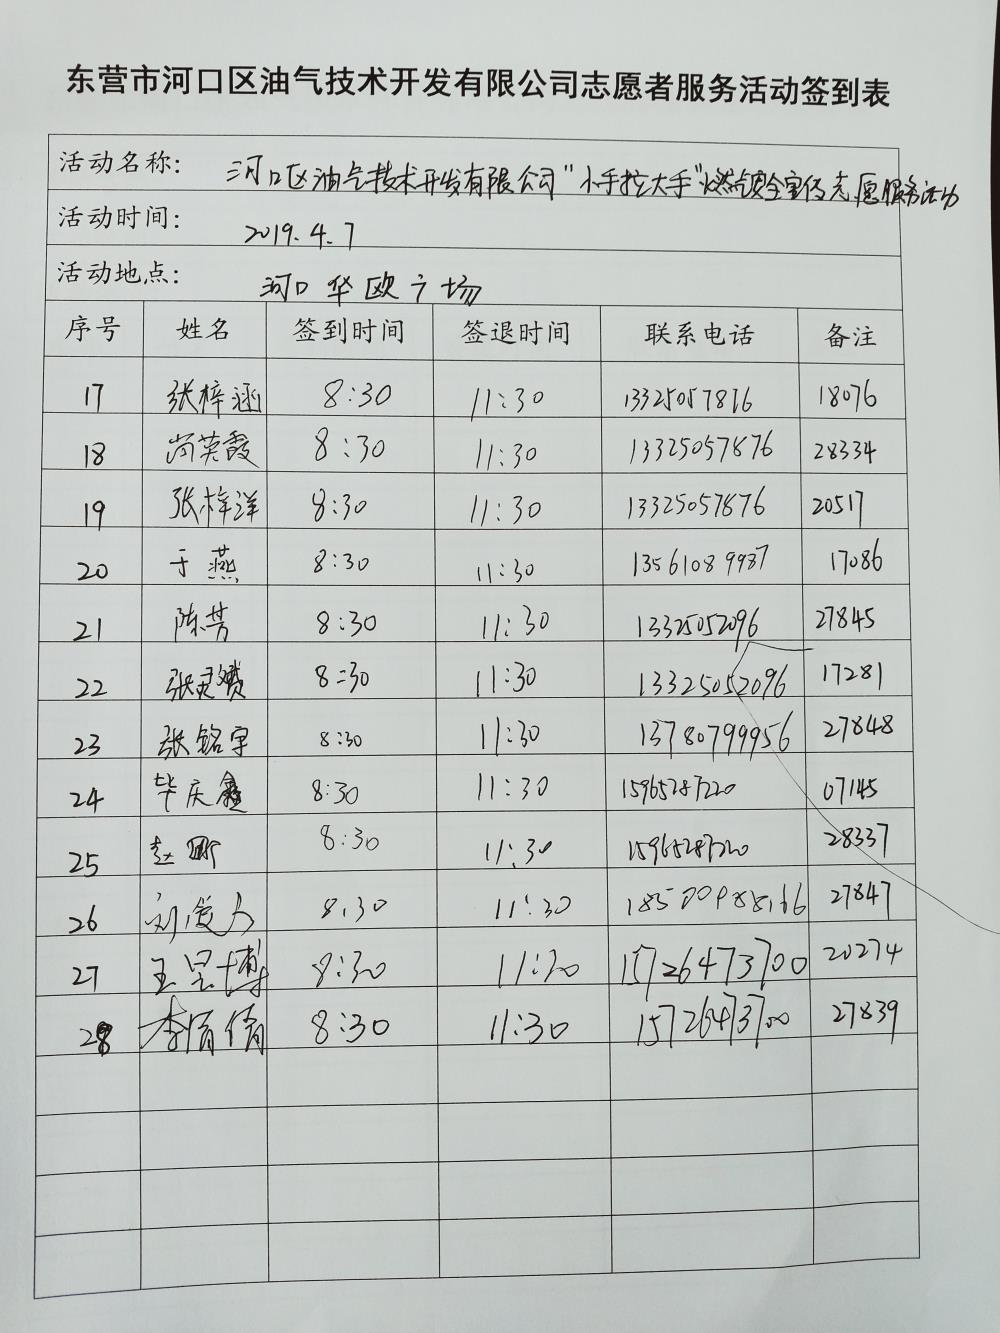 东营市河口区油气技术开发有限公司志愿者服务活动签到表
活动名称: 河口区油气技术开发有限公司"小手拉大手"燃气安全宣传志愿服务活动
活动时间: 2019.4.7
活动地点: 河口华欧广场
序号 姓名 签到时间 签退时间 联系电话 备注
17 张梓涵 8:30 11:30 13325057876 18076
18 尚英霞 8:30 11:30 13325057876 28334
19 张梓洋 8:30 11:30 13325057876 20517
20 于燕 8:30 11:30 13561089987 17086
21 陈芳 8:30 11:30 13325052096 27845
22 张灵赟 8:30 11:30 13325052096 17281
23 张铭宇 8:30 11:30 13780799956 27848
24 毕庆鑫 8:30 11:30 15965287220 07145
25 赵 8:30 11:30 15965287220 28337
26 刘俊人 8:30 11:30 27847
27 王昱博 8:30 11:30 15726473700 20274
28 李倩倩 8:30 11:30 15726473700 27839